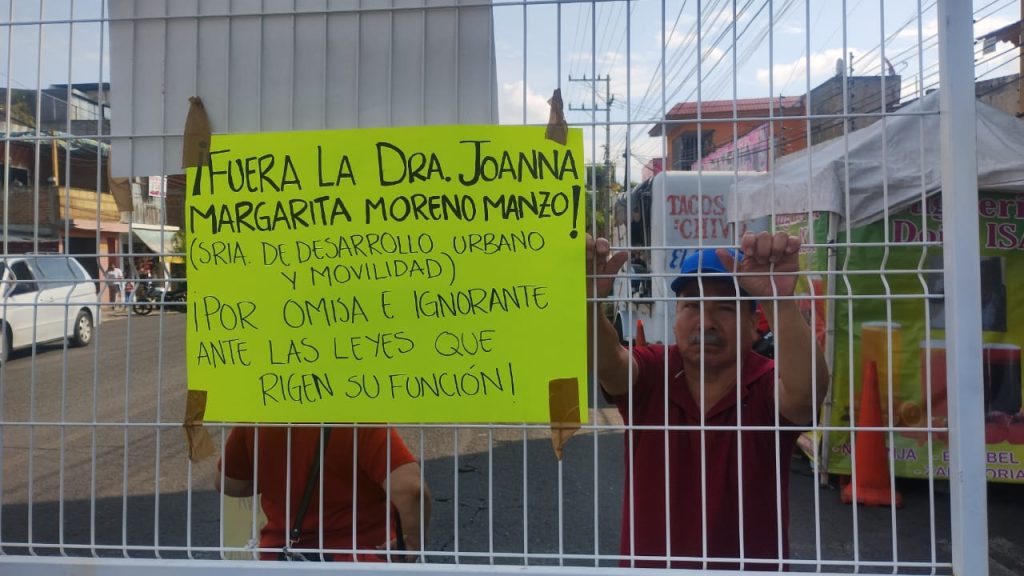 ¡FUERA LA DRA. JOANNA
MARGARITA MORENO MANZO!
(SRIA. DE DESARROLLO URBANO
Y MOVILIDAD)
¡POR OMISA E IGNORANTE
ANTE LAS LEYES QUE
RIGEN SU FUNCIÓN!
TACOS